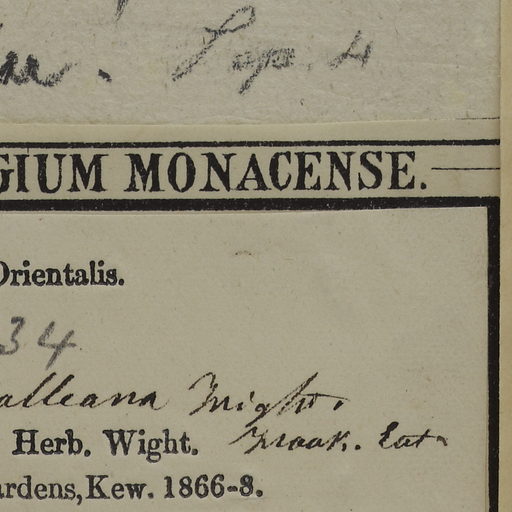 Sep. 4
GIUM MONACENSE.
Orientalis.
34
alleana Wight.
Herb. Wight.
ardens, Kew. 1866-8.